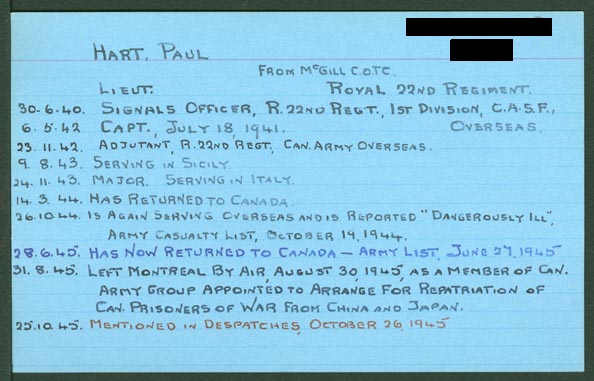 HART, PAUL
FROM McGILL C.O.T.C.
LIEUT. ROYAL 22ND REGIMENT.
30.6.40. SIGNALS OFFICER, R. 22ND REGT., 1ST DIVISION, C.A.S.F.,
6.5.42 CAPT., JULY 18, 1941. OVERSEAS.
23.11.42. ADJUTANT, R. 22ND REGT, CAN. ARMY OVERSEAS.
9.8.43. SERVING IN SICILY.
24.11.43. MAJOR. SERVING IN ITALY.
14.3.44. HAS RETURNED TO CANADA.
26.10.44. IS AGAIN SERVING OVERSEAS AND IS REPORTED "DANGEROUSLY ILL",
ARMY CASUALTY LIST, OCTOBER 19, 1944.
28.6.45. HAS NOW RETURNED TO CANADA — ARMY LIST, JUNE 27, 1945
31.8.45. LEFT MONTREAL BY AIR AUGUST 30, 1945, AS A MEMBER OF CAN.
ARMY GROUP APPOINTED TO ARRANGE FOR REPATRIATION OF
CAN. PRISONERS OF WAR FROM CHINA AND JAPAN.
25.10.45. MENTIONED IN DESPATCHES, OCTOBER 26, 1945